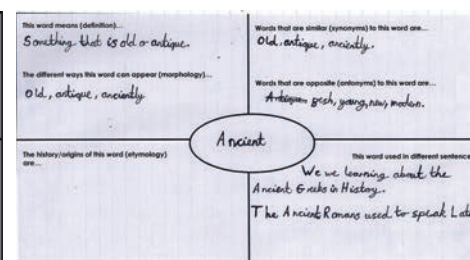 This word means (definition)...
Something that is old or antique.
The different ways this word can appear (morphology)...
Old, antique, anciently
Words that are similar (synonyms) to this word are...
Old, antique, anciently.
Words that are opposite (antonyms) to this word are...
young, new, modern.
Ancient
The history/origins of this word (etymology)
are...
This word used in different sentence
We we learning about the
Ancient Greeks in History.
The Ancient Romans used to speak Lat